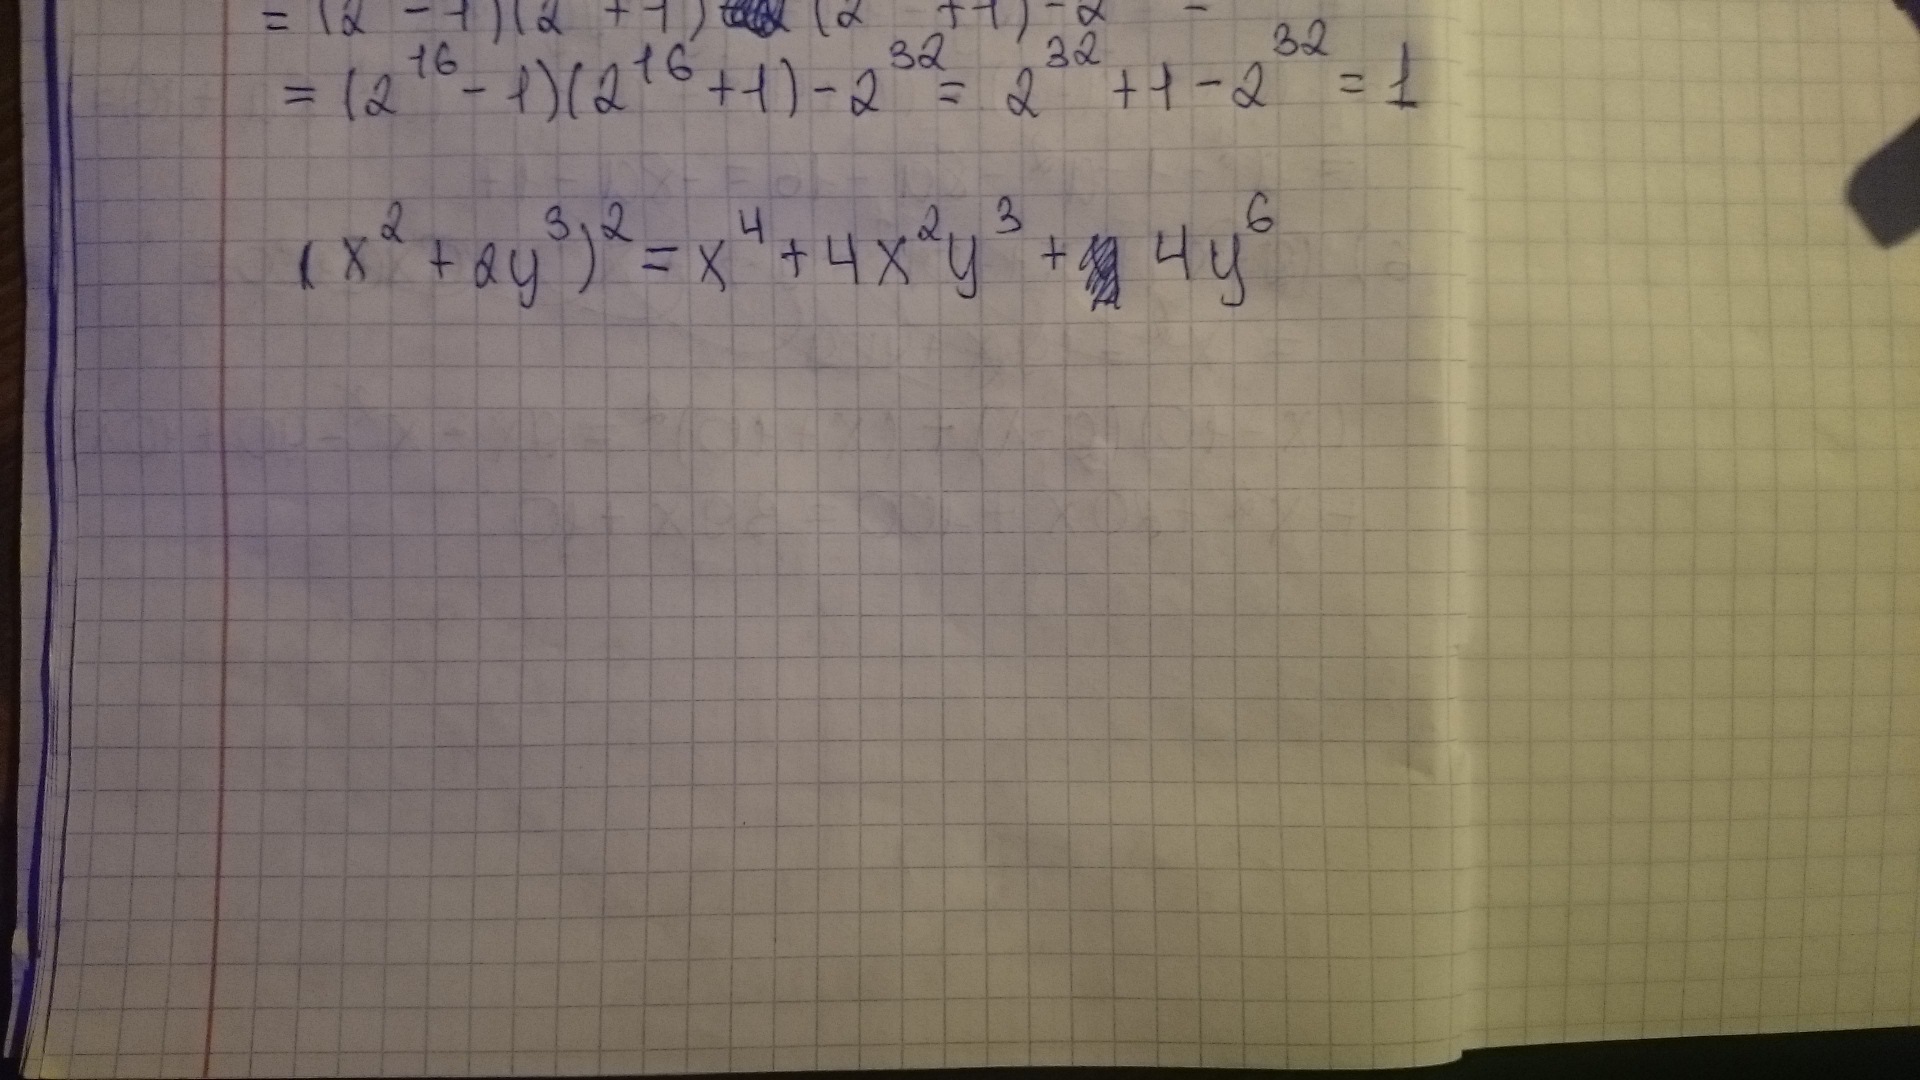 = (2 - 1)(2 + 1) (2 + 1) - 2 -
= (2^16 - 1)(2^16 + 1) - 2^32 = 2^32 + 1 - 2^32 = 1
(x^2 + 2y^3)^2 = x^4 + 4x^2y^3 + 4y^6